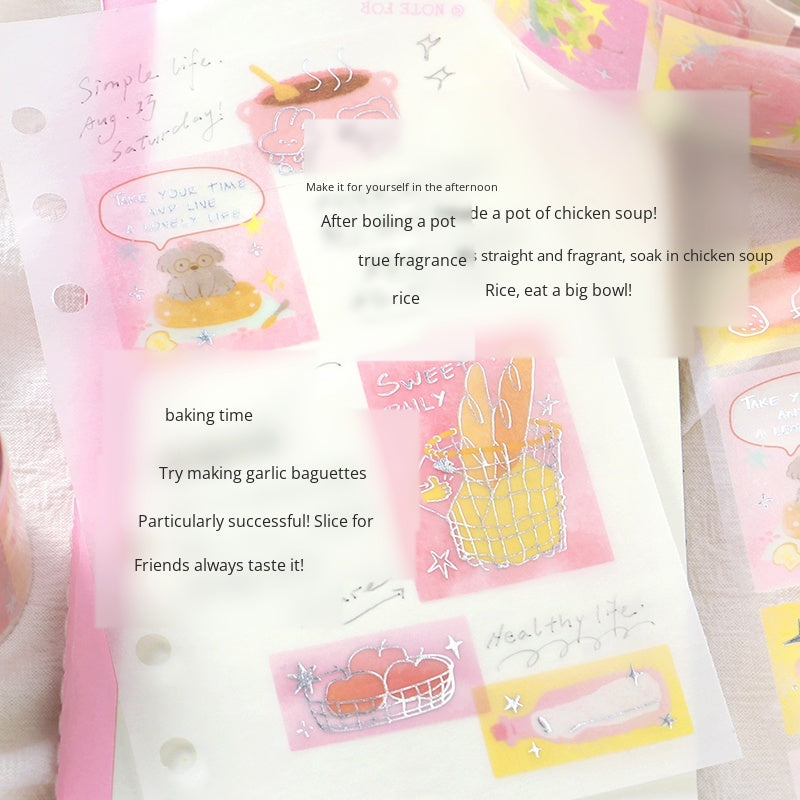 @ NOTE FOR
Simple life.
Aug. 15
Saturday!
TAKE YOUR TIME
AND LIVE
A LOVELY LIFE
Make it for yourself in the afternoon
After boiling a pot
de a pot of chicken soup!
true fragrance
s straight and fragrant, soak in chicken soup
rice
Rice, eat a big bowl!
SWEET
DAILY
baking time
Try making garlic baguettes
Particularly successful! Slice for
Friends always taste it!
Healthy life.
TAKE Y